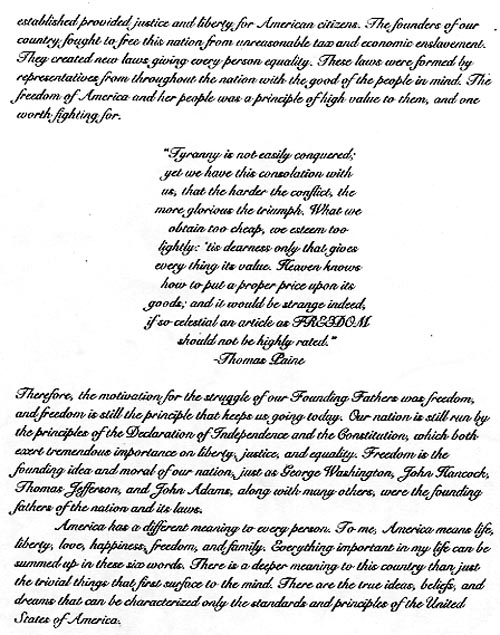 established provided justice and liberty for American citizens. The founders of our
country fought to free this nation from unreasonable tax and economic enslavement.
They created new laws giving every person equality. These laws were formed by
representatives from throughout the nation with the good of the people in mind. The
freedom of America and her people was a principle of high value to them, and one
worth fighting for.
"Tyranny is not easily conquered;
yet we have this consolation with
us, that the harder the conflict, the
more glorious the triumph. What we
obtain too cheap, we esteem too
lightly: 'tis dearness only that gives
every thing its value. Heaven knows
how to put a proper price upon its
goods; and it would be strange indeed,
if so celestial an article as FREEDOM
should not be highly rated."
-Thomas Paine
Therefore, the motivation for the struggle of our Founding Fathers was freedom,
and freedom is still the principle that keeps us going today. Our nation is still run by
the principles of the Declaration of Independence and the Constitution, which both
exert tremendous importance on liberty, justice, and equality. Freedom is the
founding idea and moral of our nation, just as George Washington, John Hancock,
Thomas Jefferson, and John Adams, along with many others, were the founding
fathers of the nation and its laws.
America has a different meaning to every person. To me, America means life,
liberty, love, happiness, freedom, and family. Everything important in my life can be
summed up in these six words. There is a deeper meaning to this country than just
the trivial things that first surface to the mind. There are the true ideas, beliefs, and
dreams that can be characterized only the standards and principles of the United
States of America.